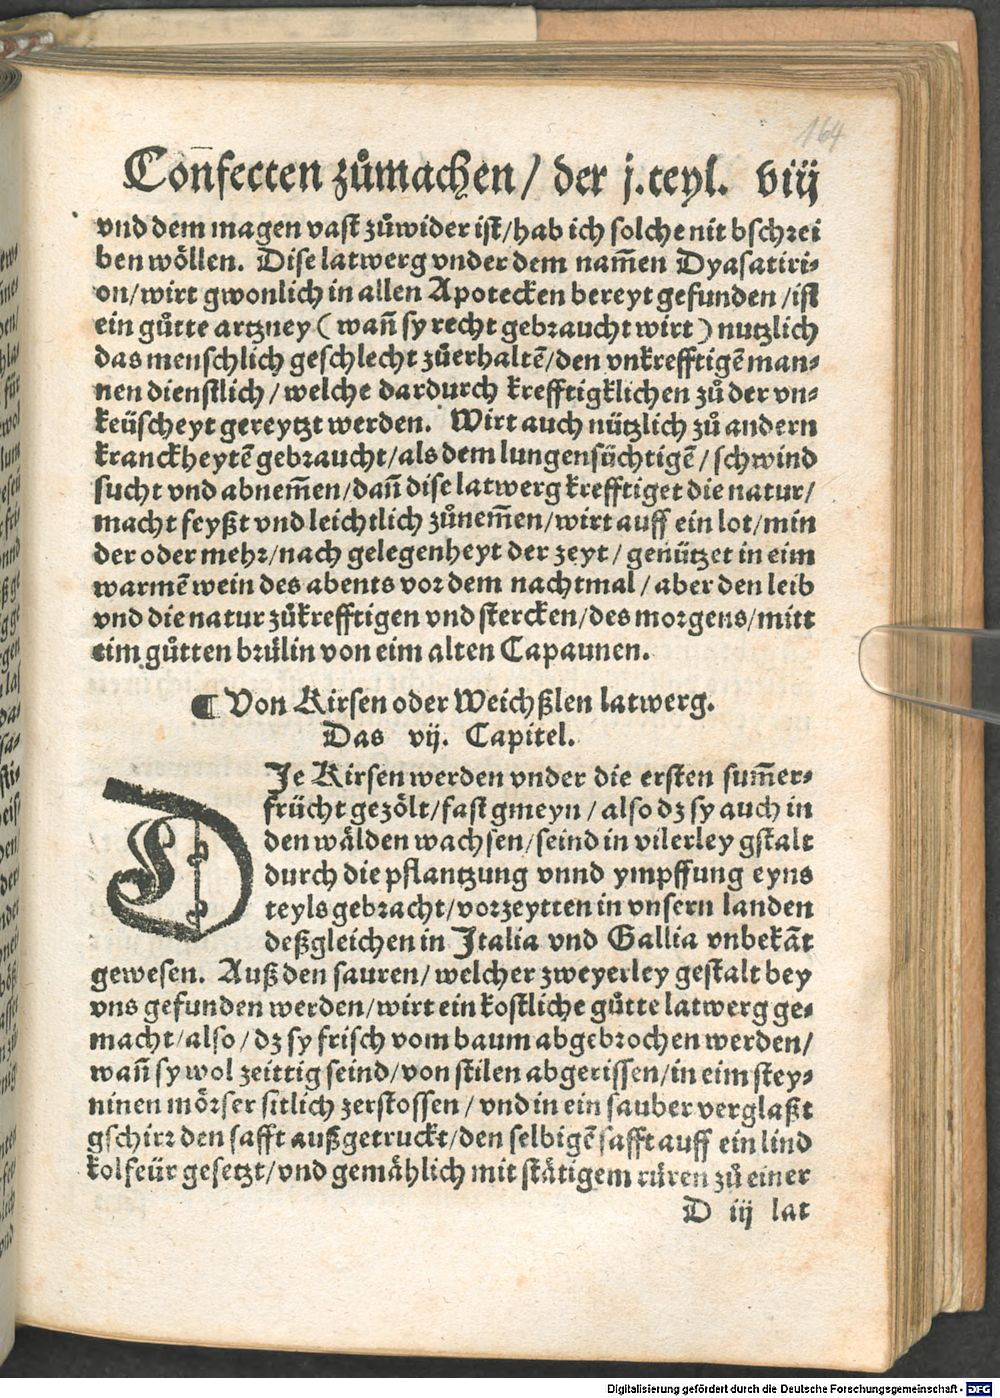 164
Con̄fecten zůmachen / der j. teyl. viij
vnd dem magen vast zůwider ist / hab ich solche nit bschrei
ben wöllen. Dise latwerg vnder dem nam̄en Dyasatiri⸗
on / wirt gwonlich in allen Apotecken bereyt gefunden / ist
ein gůtte artzney ( wan̄ sy recht gebraucht wirt ) nutzlich
das menschlich geschlecht zůerhaltē / den vnkrefftigē man⸗
nen dienstlich / welche dardurch krefftigklichen zů der vn⸗
keüscheyt gereytzt werden. Wirt auch nützlich zů andern
kranckheytē gebraucht / als dem lungensüchtigē / schwind
sucht vnd abnem̄en / dan̄ dise latwerg krefftiget die natur /
macht feyßt vnd leichtlich zůnem̄en / wirt auff ein lot / min
der oder mehr / nach gelegenheyt der zeyt / genützet in eim
warmē wein des abents vor dem nachtmal / aber den leib
vnd die natur zůkrefftigen vnd stercken / des morgens / mitt
eim gůtten brülin von eim alten Capaunen.
¶ Von Kirsen oder Weichßlen latwerg.
Das vij. Capitel.
DIe Kirsen werden vnder die ersten sum̄er⸗
frücht gezölt / fast gmeyn / also dz sy auch in
den wälden wachsen / seind in vilerley gstalt
durch die pflantzung vnnd ympffung eyns
teyls gebracht / vorzeytten in vnsern landen
deßgleichen in Italia vnd Gallia vnbekāt
gewesen. Auß den sauren / welcher zweyerley gestalt bey
vns gefunden werden / wirt ein kostliche gůtte latwerg ge⸗
macht / also / dz sy frisch vom baum abgebrochen werden /
wan̄ sy wol zeittig seind / von stilen abgerissen / in eim stey⸗
ninen mörser sitlich zerstossen / vnd in ein sauber verglaßt
gschirr den safft außgetruckt / den selbigē safft auff ein lind
kolfeür gesetzt / vnd gemählich mit stätigem rüren zů einer
D iij lat
Digitalisierung gefördert durch die Deutsche Forschungsgemeinschaft - DFG